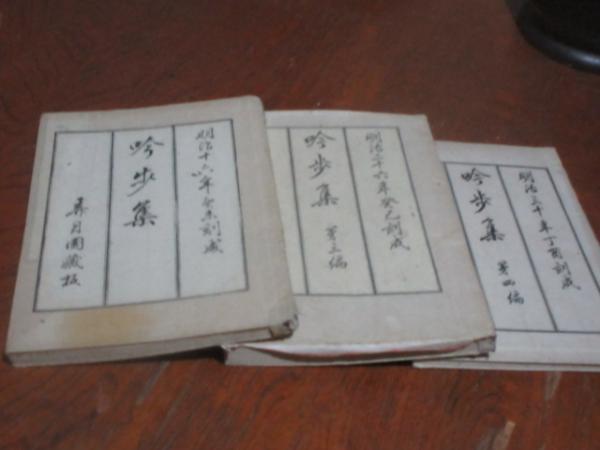 明治十六年癸未刻成
吟步集
月園藏板
明治二十六年癸巳刻成
吟步集 第三編
明治三十年丁酉刻成
吟步集 第四編